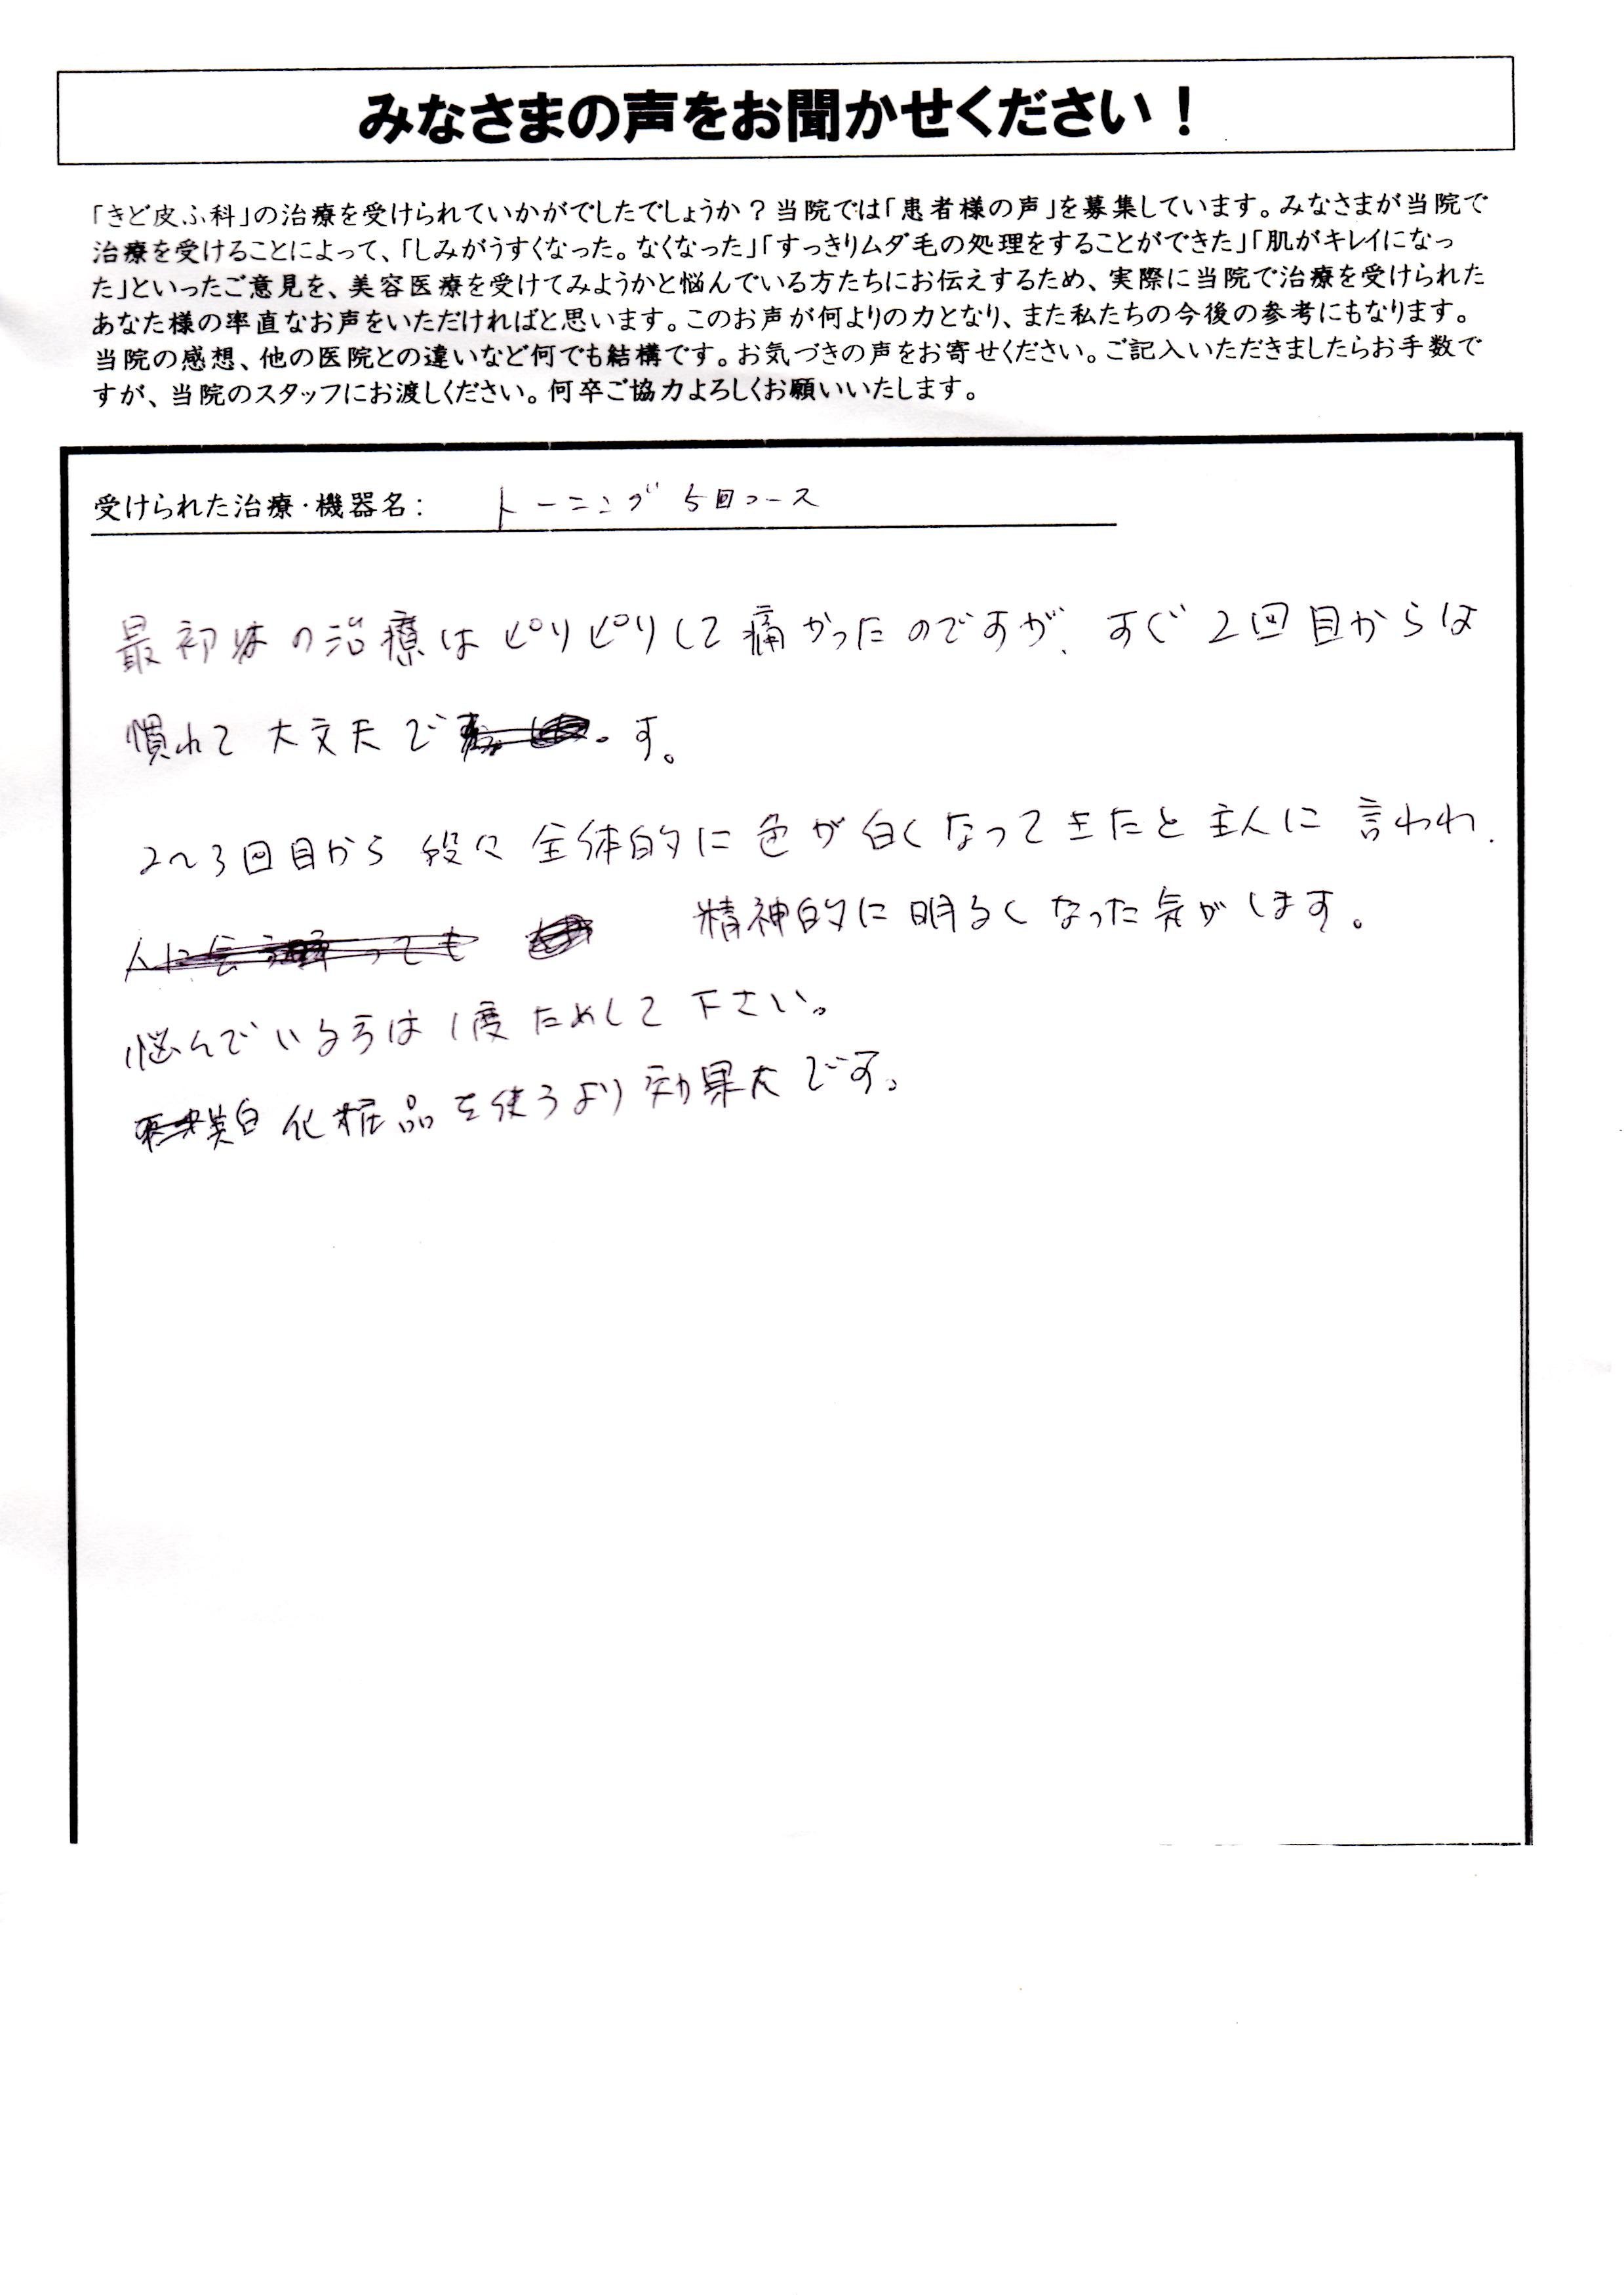 みなさまの声をお聞かせください！
「きど皮ふ科」の治療を受けられていかがでしたでしょうか？当院では「患者様の声」を募集しています。みなさまが当院で
治療を受けることによって、「しみがうすくなった。なくなった」「すっきりムダ毛の処理をすることができた」「肌がキレイになっ
た」といったご意見を、美容医療を受けてみようかと悩んでいる方たちにお伝えするため、実際に当院で治療を受けられた
あなた様の率直なお声をいただければと思います。このお声が何よりの力となり、また私たちの今後の参考にもなります。
当院の感想、他の医院との違いなど何でも結構です。お気づきの声をお寄せください。ご記入いただきましたらお手数で
すが、当院のスタッフにお渡しください。何卒ご協力よろしくお願いいたします。
受けられた治療・機器名： トーニング 5回コース
最初の治療はピリピリして痛かったのですが、すぐ2回目からは
慣れて大丈夫です。
2〜3回目から段々全体的に色が白くなってきたと主人に言われ、
精神的に明るくなった気がします。
悩んでいる方は1度ためして下さい。
美白化粧品を使うより効果大です。